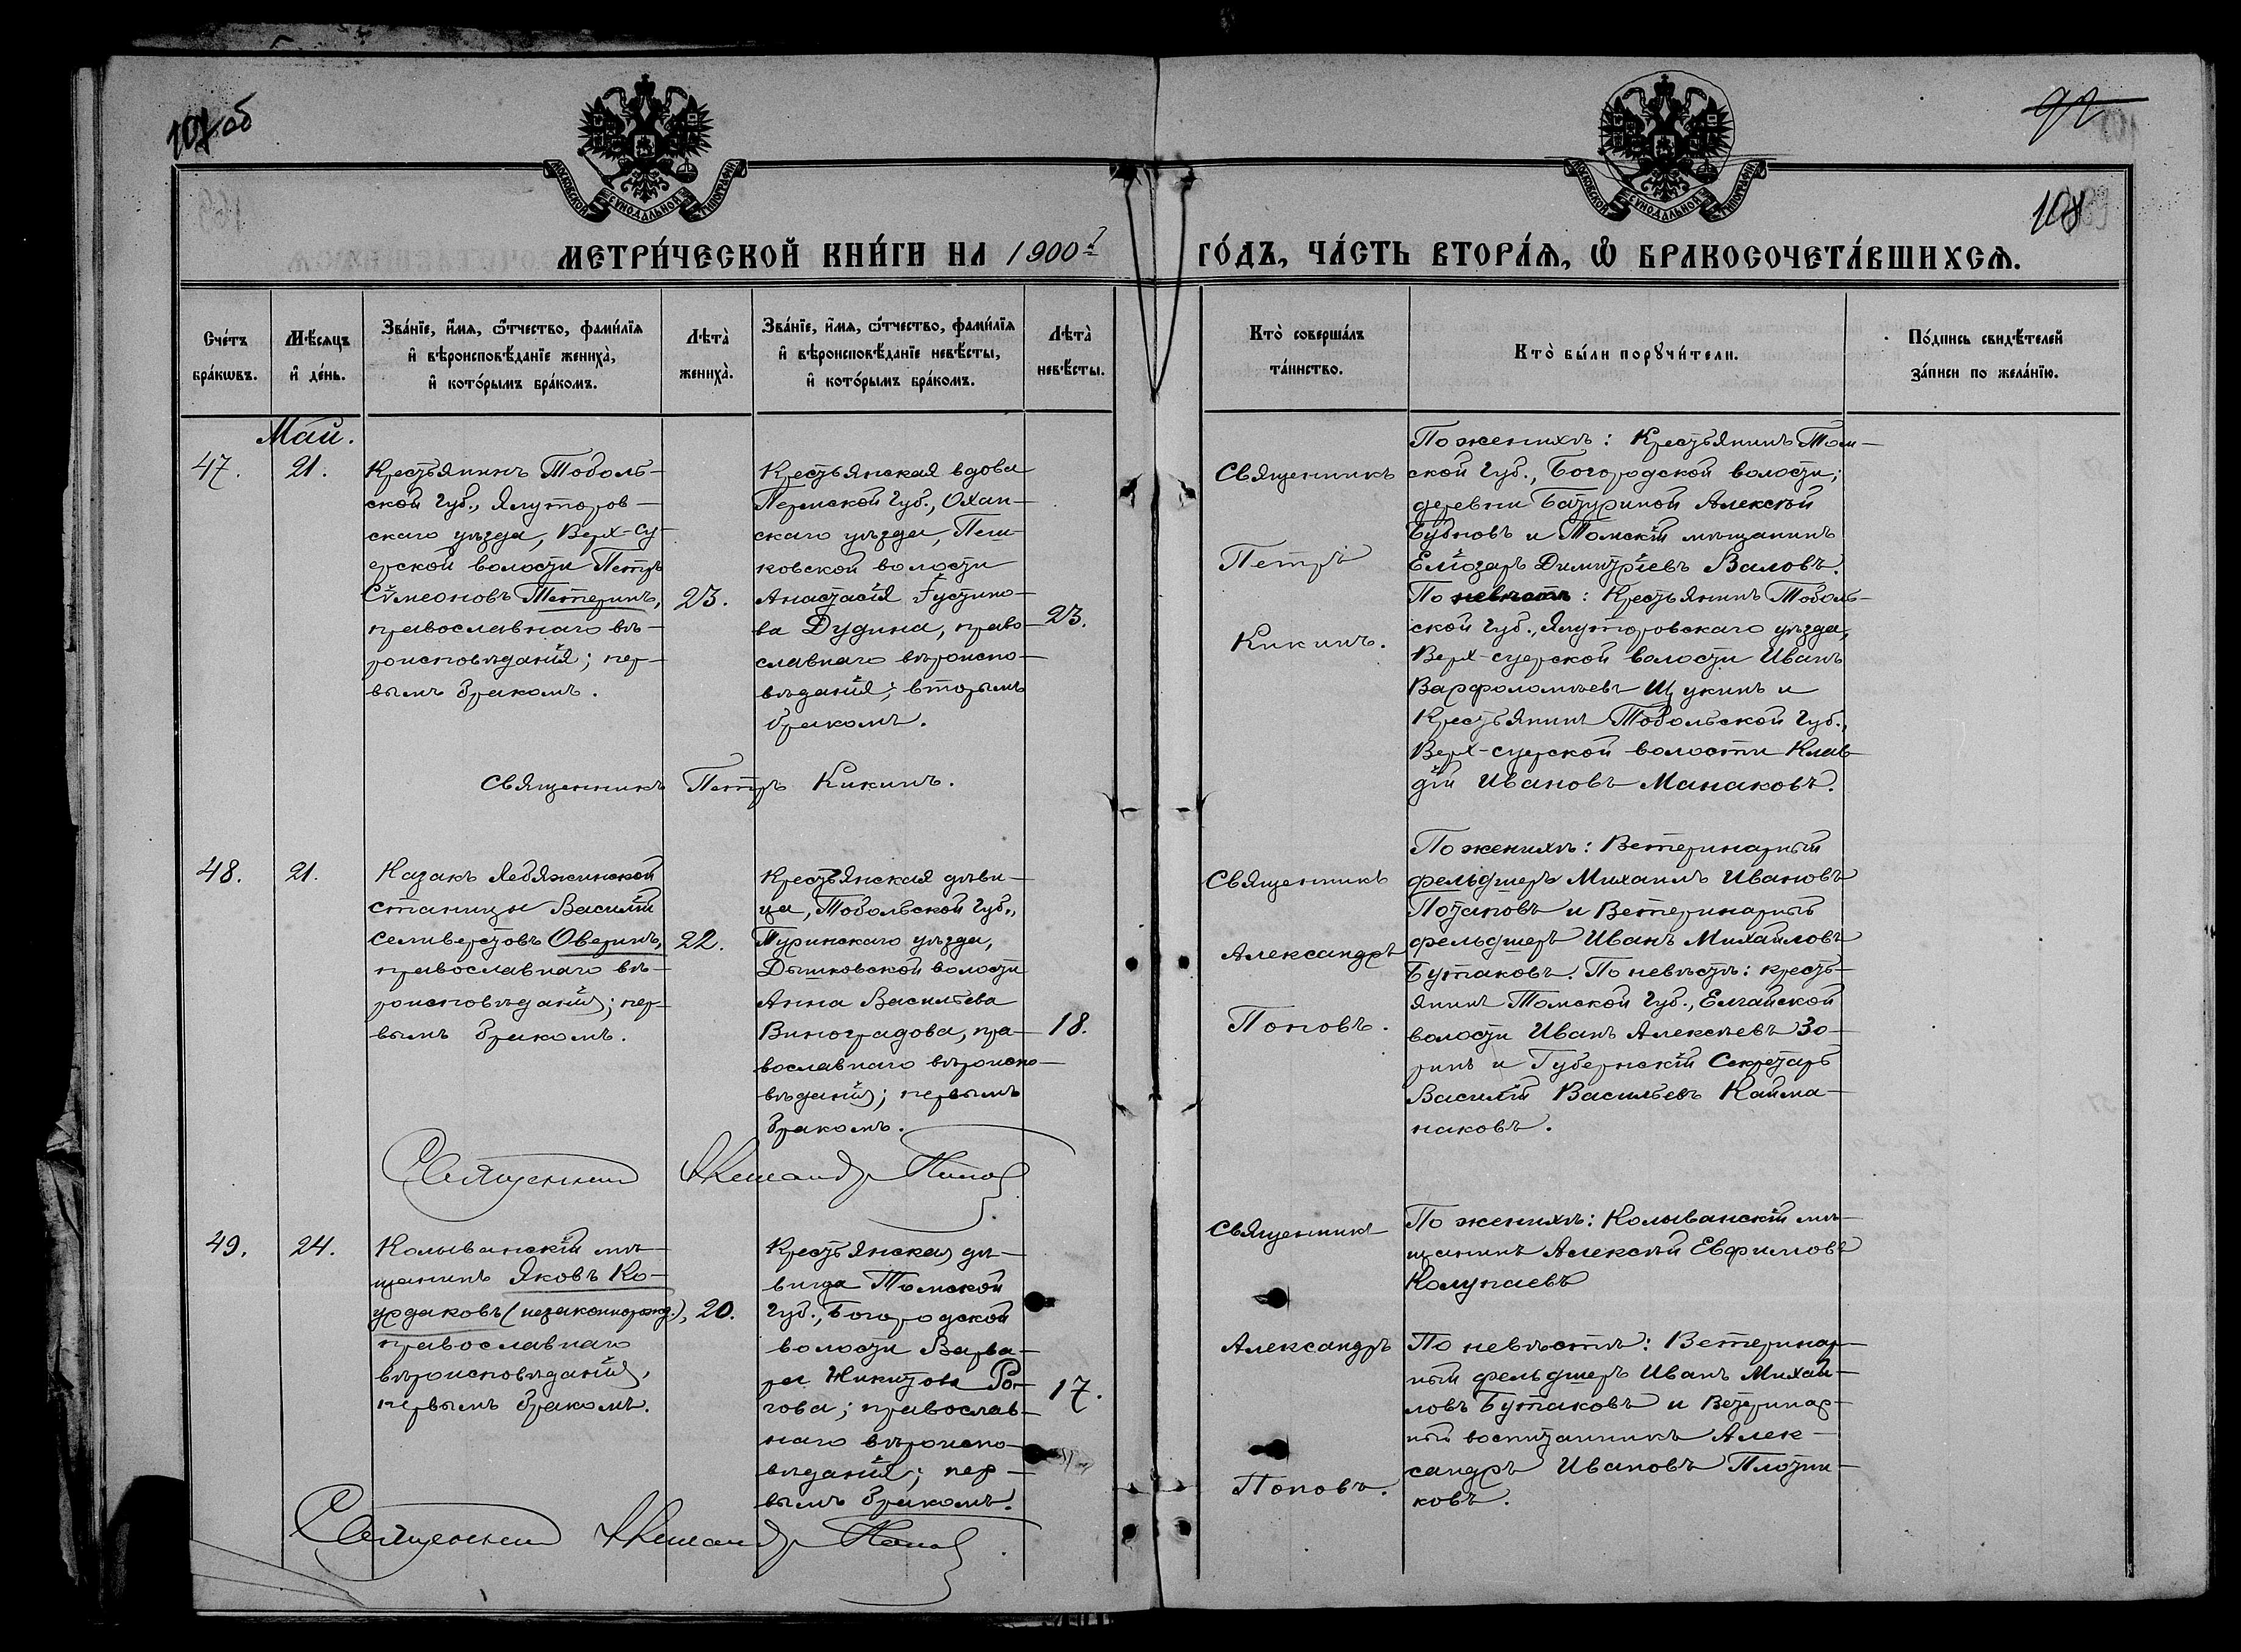 107 об
92
108
МОСКОВСКОЙ СѴНОДАЛЬНОЙ ТИПОГРАФІИ
МОСКОВСКОЙ СѴНОДАЛЬНОЙ ТИПОГРАФІИ
МЕТРИ́ЧЕСКОЙ КНИ́ГИ НА 1900 г
ГО́ДЪ, ЧА́СТЬ ВТОРА́Ѧ, Ѽ БРАКОСОЧЕТА́ВШИХСѦ.
Сче́тъ бра́кѡвъ.
Мѣ́сѧцъ и҆ де́нь.
Зва́нїе, и҆́мѧ, ѻ҆́тчество, фамѝлїѧ
и҆ вѣроисповѣ́данїе женихà,
и҆ кото́рымъ бра́комъ.
Лѣтà женихà.
Зва́нїе, и҆́мѧ, ѻ҆́тчество, фамѝлїѧ
и҆ вѣроисповѣ́данїе невѣ́сты,
и҆ кото́рымъ бра́комъ.
Лѣтà невѣ́сты.
Ктò соверша́лъ
та́инство.
Ктò бы́ли порꙋчи́тели.
По́дпись свидѣ́телей
за́писи по жела́нїю.
Май.
47.
21.
Крестьянинъ Тоболь-
ской губ., Ялуторов-
скаго уѣзда, Верх-Су-
ерской волости Петръ
Сѵмеоновъ Тетеринъ,
православнаго вѣ-
роисповѣданія; пер-
вымъ бракомъ.
23.
Крестьянская вдова
Пермской губ., Охан-
скаго уѣзда, Пеш-
ковской волости
Анастасія Іустино-
ва Дудина, право-
славнаго вѣроиспо-
вѣданія; вторымъ
бракомъ.
23.
Священникъ
Петръ
Кикинъ.
По женихѣ: Крестьянинъ Том-
ской губ., Богородской волости,
деревни Батуриной Алексѣй
Бубновъ и Томскій мѣщанинъ
Еліозаръ Димитріевъ Валовъ.
По невѣстѣ: Крестьянинъ Тоболь-
ской губ., Ялуторовскаго уѣзда,
Верх-суерской волости Иванъ
Варфоломѣевъ Щукинъ и
Крестьянинъ Тобольской губ.,
Верх-суерской волости Клав-
дій Ивановъ Манаковъ.
Священникъ Петръ Кикинъ.
48.
21.
Казакъ Лебяжинской
станицы Василій
Селиверстовъ Оверинъ,
православнаго вѣ-
роисповѣданія; пер-
вымъ бракомъ.
22.
Крестьянская дѣви-
ца, Тобольской губ.,
Туринскаго уѣзда,
Дымковской волости
Анна Васильева
Виноградова, пра-
вославнаго вѣроиспо-
вѣданія; первымъ
бракомъ.
18.
Священникъ
Александръ
Поповъ.
По женихѣ: Ветеринарный
фельдшеръ Михаилъ Ивановъ
Потаповъ и Ветеринарный
фельдшеръ Иванъ Михайловъ
Бутаковъ. По невѣстѣ: Кресть-
янинъ Томской губ., Елгайской
волости Иванъ Алексѣевъ Зо-
ринъ и Губернскій Секретарь
Василій Васильевъ Кайма-
наковъ.
Священникъ Александръ Поповъ
49.
24.
Колыванскій мѣ-
щанинъ Яковъ Ко-
урдаковъ (незаконнорожд.),
православнаго
вѣроисповѣданія,
первымъ бракомъ.
20.
Крестьянская дѣ-
вица Томской
губ., Богородской
волости Варва-
ра Никитова Ро-
гова; православ-
наго вѣроиспо-
вѣданія; пер-
вымъ бракомъ.
17.
Священникъ
Александръ
Поповъ.
По женихѣ: Колыванскій мѣ-
щанинъ Алексѣй Евфимовъ
Колупаевъ
По невѣстѣ: Ветеринар-
ный фельдшеръ Иванъ Михай-
ловъ Бутаковъ и Ветеринар-
ный воспитанникъ Алек-
сандръ Ивановъ Плотни-
ковъ.
Священникъ Александръ Поповъ